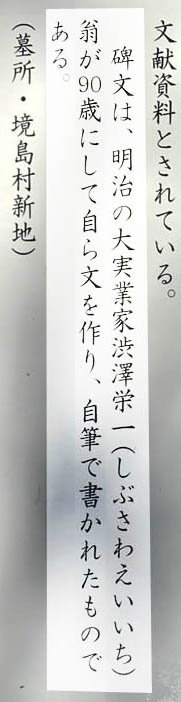 文献資料とされている。
碑文は、明治の大実業家渋澤栄一(しぶさわえいいち)
翁が90歳にして自ら文を作り、自筆で書かれたもので
ある。
(墓所・境島村新地)